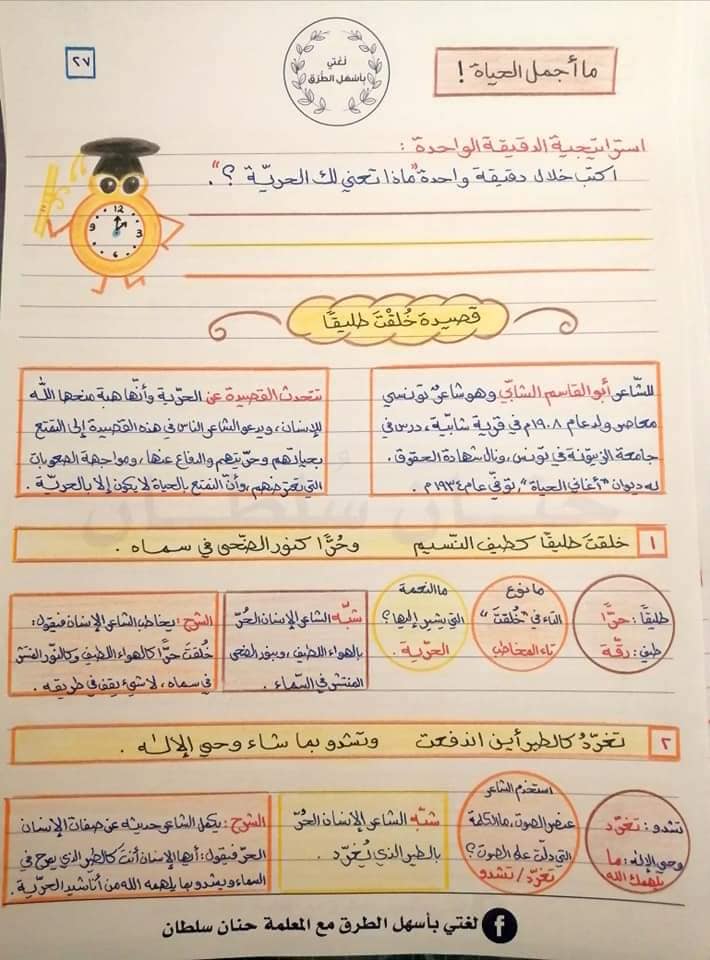 ما أجمل الحياة !
لغتي
بأسهل الطرق
٢٧
استراتيجية الدقيقة الواحدة :
اكتب خلال دقيقة واحدة "ماذا تعني لك الحريّة ؟".
12
3
6
9
قصيدة خُلقْتَ طليقًا
للشّاعر أبو القاسم الشابّي وهو شاعرٌ تونسي
معاصر ولد عام ١٩٠٨م في قرية شابيّة، درس في
جامعة الزيتونة في تونس، ونال شهادة الحقوق.
له ديوان "أغاني الحياة"، توفّي عام ١٩٣٤م.
تتحدث القصيدة عن الحرّية وأنّها هبة منحها الله
للإنسان، ويدعو الشاعر الناس في هذه القصيدة إلى التمتع
بحياتهم وحرّيتهم والدفاع عنها، ومواجهة الصعوبات
التي تعترضهم، وأنّ التمتع بالحياة لا يكون إلا بالحريّة.
١ خلقتَ طليقًا كطيف النّسيم وحُرًّا كنور الضّحى في سماه .
طليقًا: حرًّا
طيف: رقّة
ما نوع
التاء في "خُلقتَ"
تاء المخاطب
ما النعمة
التي يشير إليها؟
الحرّية .
شبّه الشاعر الإنسان الحُرّ
بالهواء اللطيف، وبنور الضحى
المنتشر في السّماء .
الشرح: يخاطب الشاعر الإنسان فيقول:
خُلقتَ حرًّا كالهواء اللطيف وكالنّور المنتشر
في سماه، لا شيء يقف في طريقه .
٢ تغرّدُ كالطير أين اندفعت وتشدو بما شاء وحي الإله .
تشدو: تغرّد
وحي الإله: ما
يلهمك الله
استخدم الشاعر
عنصر الصوت، ما الكلمة
التي دلّت على الصوت؟
تغرّد / تشدو
شبّه الشاعر الإنسان الحُرّ
بالطير الذي يُغرّد .
الشرح: يكمل الشاعر حديثه عن صفات الإنسان
الحرّ فيقول: أيها الإنسان أنتَ كالطير الذي يمرح في
السماء ويشدو بما يلهمه الله من أناشيد الحرّية.
لغتي بأسهل الطرق مع المعلمة حنان سلطان